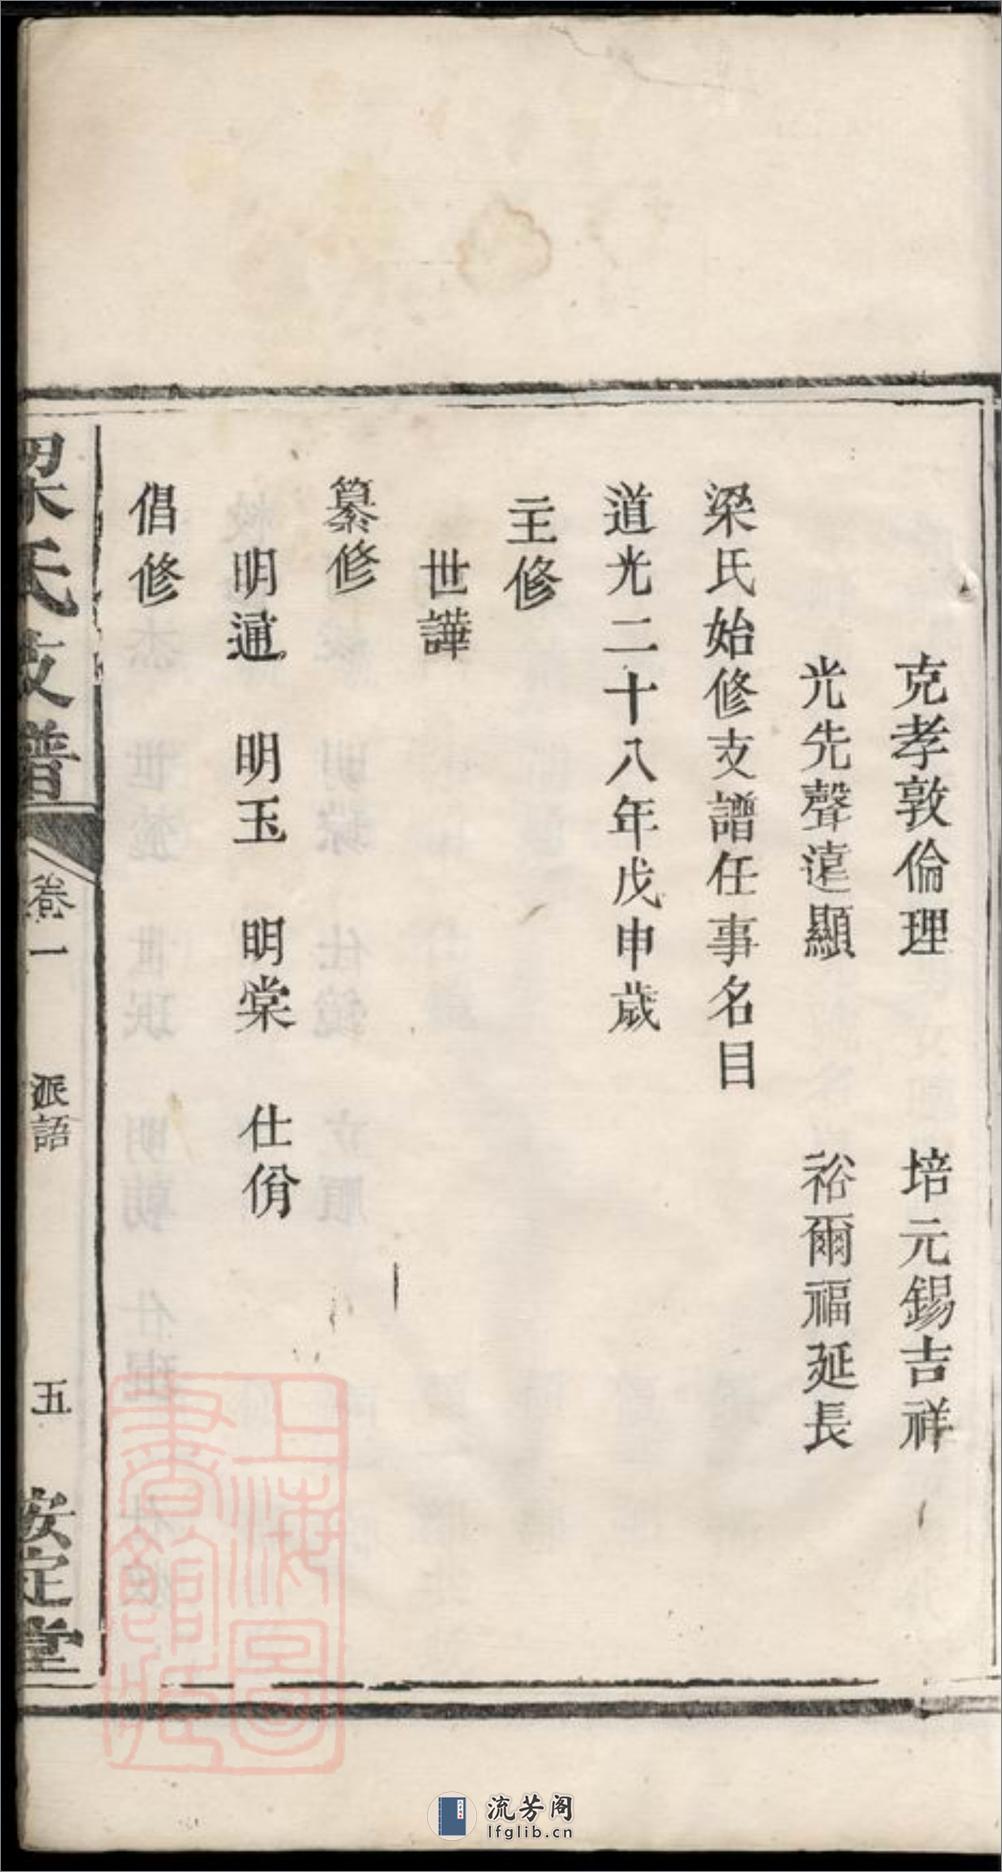 克孝敦倫理　培元錫吉祥
光先聲遠顯　裕爾福延長
梁氏始修支譜任事名目
道光二十八年戊申歲
主修
世譁
纂修
明通　明玉　明棠　仕佾
倡修
梁氏支譜　卷一　派語　五　安定堂
上海圖書館藏
流芳阁
lfglib.cn